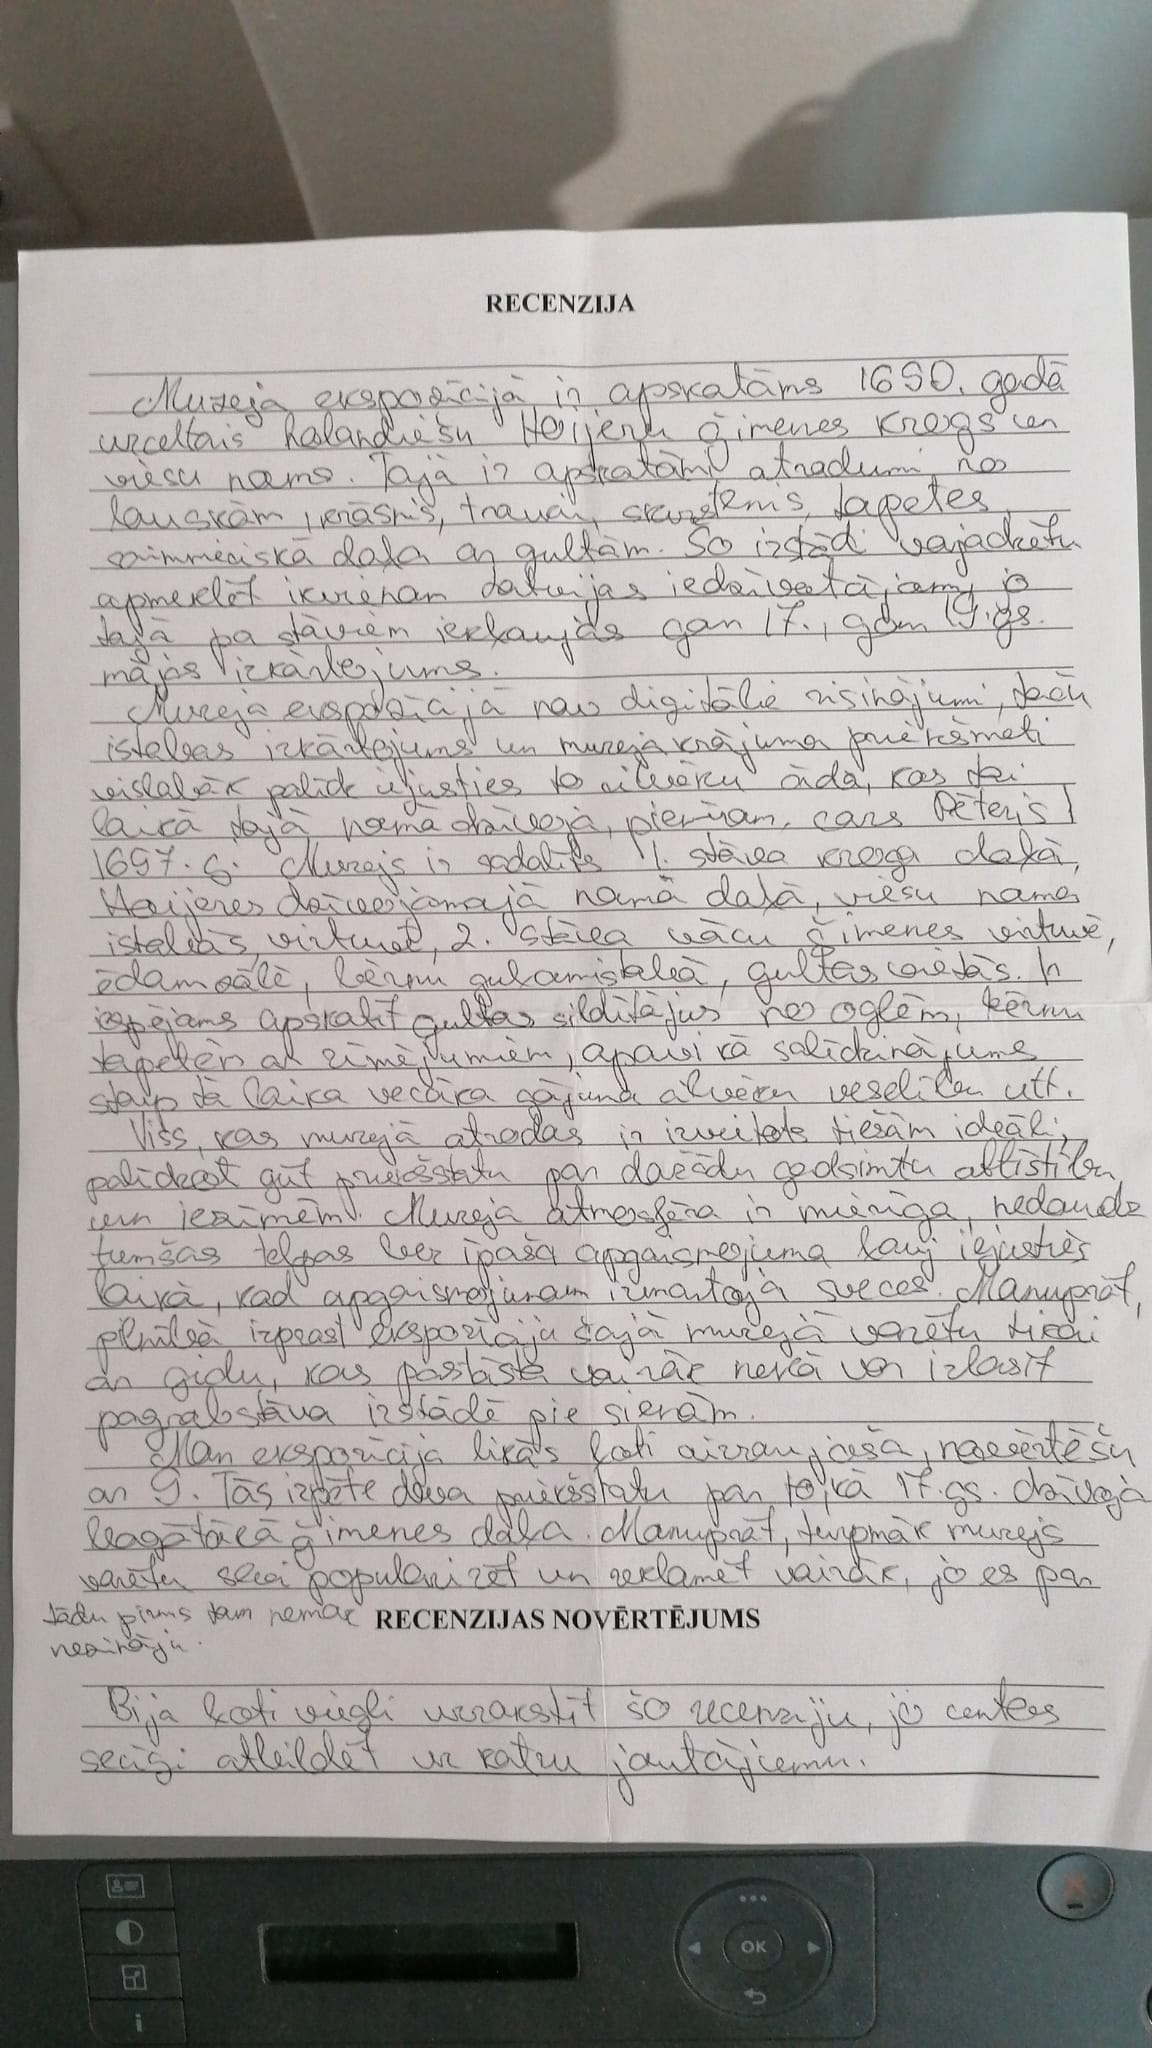 RECENZIJA
Muzeja ekspozīcijā ir apskatāms 1690. gadā
uzceltais holandiešu Hoijeru ģimenes krogs un
viesu nams. Tajā ir apskatāmi atradumi no
lauskām, krāsnis, trauki, skurstenis, tapetes,
saimnieciskā daļa ar gultām. Šo izstādi vajadzētu
apmeklēt ikvienam Latvijas iedzīvotājam, jo
tajā pa stāviem iekļaujās gan 17., gan 19. gs.
mājas izkārtojums.
Muzeja ekspozīcijā nav digitālie risinājumi, taču
istabas izkārtojums un muzeja krājuma priekšmeti
vislabāk palīdz iejusties to cilvēku ādā, kas tai
laikā tajā namā dzīvoja, piemēram, cars Pēteris I
1697. g. Muzejs ir sadalīts 1. stāva kroga daļā,
Hoijeres dzīvojamajā namā daļā, viesu nama
istabās, virtuvē, 2. stāva vācu ģimenes virtuvē,
ēdamzālē, bērnu guļamistabā, gultas vietās. Ir
iespējams apskatīt gultas sildītājus no oglēm, bērnu
tapetēm ar zīmējumiem, apavi kā salīdzinājums
starp tā laika vecāka gājuma cilvēku veselību utt.
Viss, kas muzejā atrodas ir izveidots tiešām ideāli,
palīdzot gūt priekšstatu par dažādu gadsimtu attīstību
un iezīmēm. Muzeja atmosfēra ir mierīga, nedaudz
tumšas telpas bez īpaša apgaismojuma ļauj iejusties
laikā, kad apgaismojumam izmantoja sveces. Manuprāt,
pilnībā izprast ekspozīciju šajā muzejā varētu tikai
ar gidu, kas pastāsta vairāk nekā var izlasīt
pagrabstāva izstādē pie sienām.
Man ekspozīcija likās ļoti aizraujoša, novērtēšu
ar 9. Tās izpēte deva priekšstatu par to, kā 17. gs. dzīvoja
bagātākā ģimenes daļa. Manuprāt, turpmāk muzejs
varētu sevi popularizēt un reklamēt vairāk, jo es par
tādu pirms tam nemaz
nezināju.
RECENZIJAS NOVĒRTĒJUMS
Bija ļoti viegli uzrakstīt šo recenziju, jo centos
secīgi atbildēt uz katru jautājumu.
OK